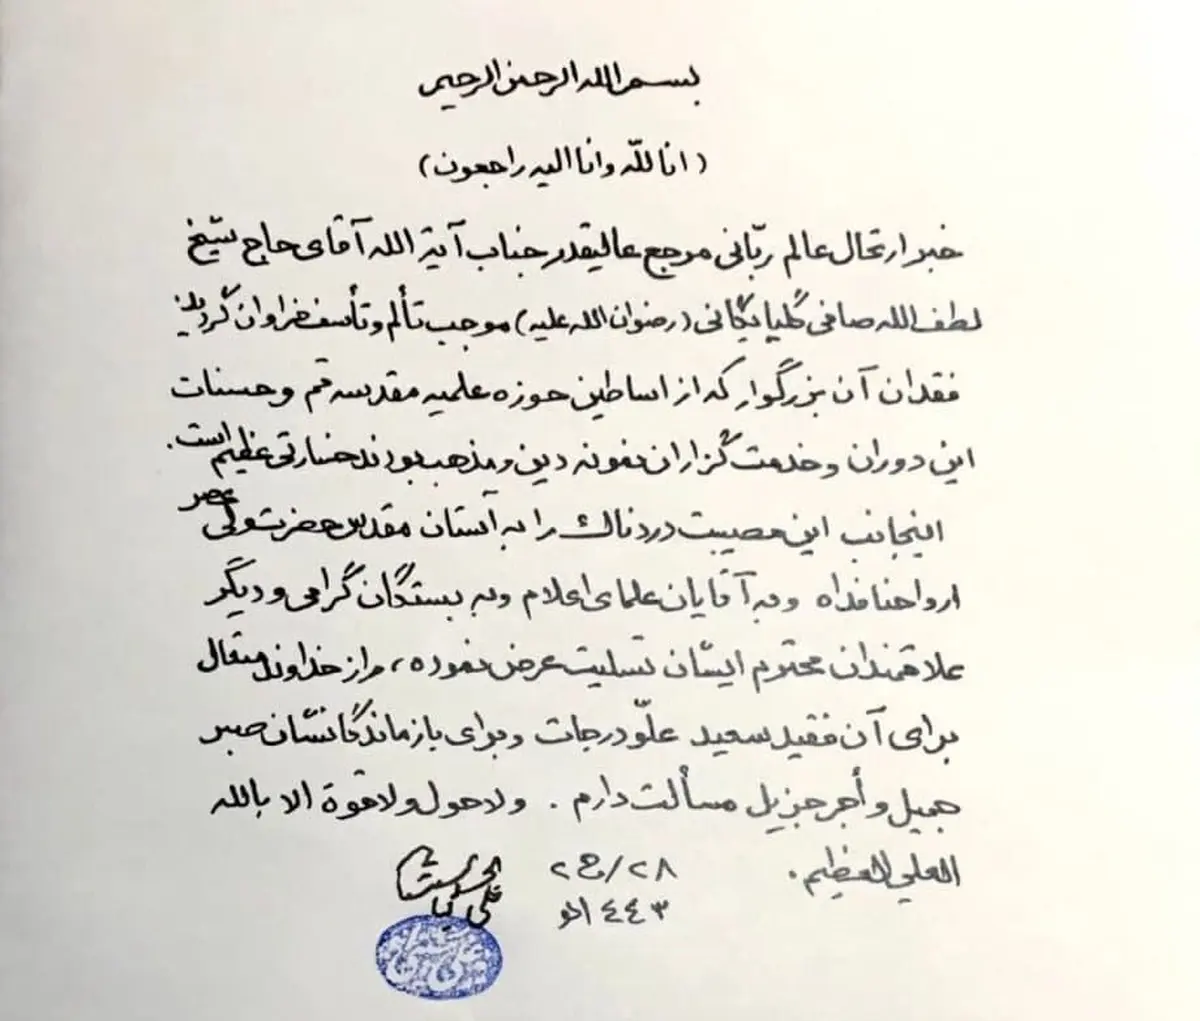 بسم الله الرحمن الرحیم
(انا للّه وانا الیه راجعون)
خبر ارتحال عالم ربّانی مرجع عالیقدر جناب آیة الله آقای حاج شیخ
لطف الله صافی گلپایگانی (رضوان الله علیه) موجب تألم وتأسف فراوان گردید
فقدان آن بزرگوار که از اساطین حوزه علمیه مقدسه قم و حسنات
این دوران و خدمت گزاران نمونه دین ومذهب بودند خسارتی عظیم است.
اینجانب این مصیبت دردناك را به آستان مقدس حضرت ولی عصر
ارواحنا فداه وبه آقایان علمای اعلام وبه بستگان گرامی و دیگر
علاقمندان محترم ایشان تسلیت عرض نموده، واز خداوند متعال
برای آن فقید سعید علوّ درجات وبرای بازماندگانشان صبر
جمیل و أجر جزیل مسألت دارم. ولا حول ولا قوة الا بالله
العلي العظیم.
٢٨/ج٢
١٤٤٣هـ
علی الحسینی السیستانی